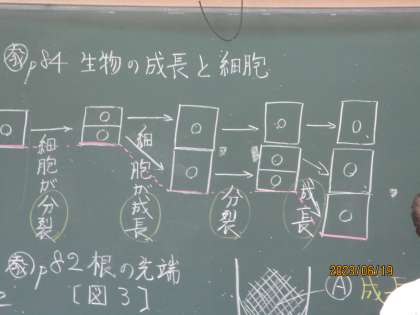 教 p84 生物の成長と細胞
細胞が分裂
細胞が成長
分裂
成長
教 p82 根の先端
[図3]
A 成
2023/06/19